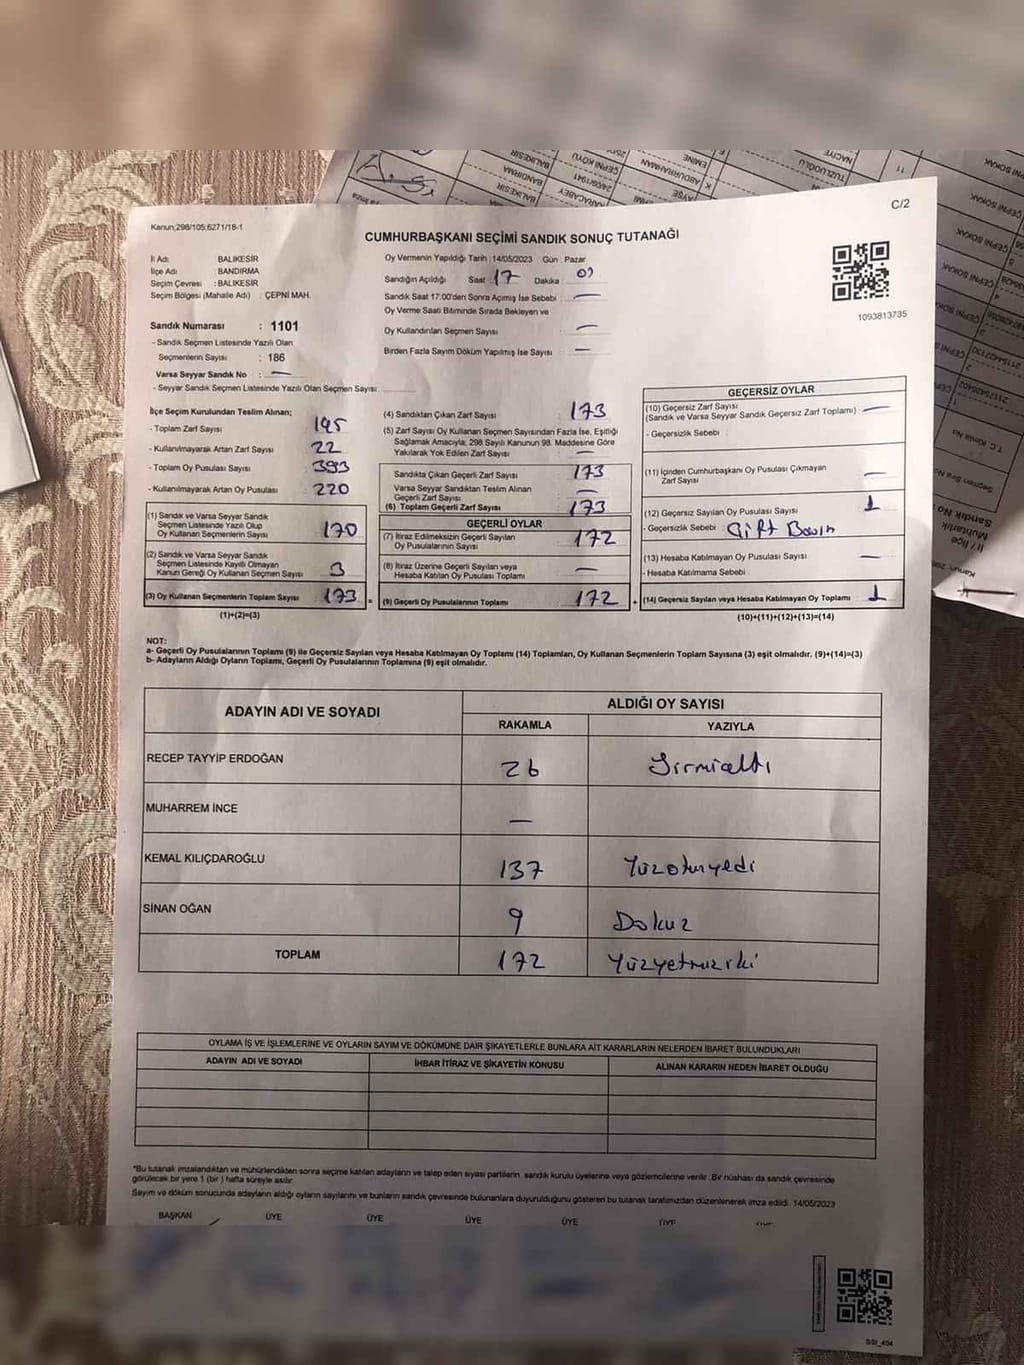 C/2
Kanun;298/105;6271/18-1
CUMHURBAŞKANI SEÇİMİ SANDIK SONUÇ TUTANAĞI
1093813735
İl Adı : BALIKESİR
İlçe Adı : BANDIRMA
Seçim Çevresi : BALIKESİR
Seçim Bölgesi (Mahalle Adı) : ÇEPNİ MAH.
Sandık Numarası : 1101
- Sandık Seçmen Listesinde Yazılı Olan
Seçmenlerin Sayısı : 186
Varsa Seyyar Sandık No : —
- Seyyar Sandık Seçmen Listesinde Yazılı Olan Seçmen Sayısı
Oy Vermenin Yapıldığı Tarih :14/05/2023 Gün : Pazar
Sandığın Açıldığı Saat : 17 Dakika :
Sandık Saat 17:00'den Sonra Açımış İse Sebebi : —
Oy Verme Saati Bitiminde Sırada Bekleyen ve
Oy Kullandırılan Seçmen Sayısı : —
Birden Fazla Sayım Döküm Yapılmış İse Sayısı : —
İlçe Seçim Kurulundan Teslim Alınan;
- Toplam Zarf Sayısı : 195
- Kullanılmayarak Artan Zarf Sayısı : 22
- Toplam Oy Pusulası Sayısı : 393
- Kullanılmayarak Artan Oy Pusulası : 220
(1) Sandık ve Varsa Seyyar Sandık
Seçmen Listesinde Yazılı Olup
Oy Kullanan Seçmenlerin Sayısı : 170
(2) Sandık ve Varsa Seyyar Sandık
Seçmen Listesinde Kayıtlı Olmayan
Kanun Gereği Oy Kullanan Seçmen Sayısı : 3
(3) Oy Kullanan Seçmenlerin Toplam Sayısı : 173
(1)+(2)=(3)
(4) Sandıktan Çıkan Zarf Sayısı : 173
(5) Zarf Sayısı Oy Kullanan Seçmen Sayısından Fazla İse, Eşitliği
Sağlamak Amacıyla; 298 Sayılı Kanunun 98. Maddesine Göre
Yakılarak Yok Edilen Zarf Sayısı : —
Sandıkta Çıkan Geçerli Zarf Sayısı : 173
Varsa Seyyar Sandıktan Teslim Alınan
Geçerli Zarf Sayısı : —
(6) Toplam Geçerli Zarf Sayısı : 173
GEÇERLİ OYLAR
(7) İtiraz Edilmeksizin Geçerli Sayılan
Oy Pusulalarının Sayısı : 172
(8) İtiraz Üzerine Geçerli Sayılan veya
Hesaba Katılan Oy Pusulası Toplamı : —
(9) Geçerli Oy Pusulalarının Toplamı : 172
GEÇERSİZ OYLAR
(10) Geçersiz Zarf Sayısı
(Sandık ve Varsa Seyyar Sandık Geçersiz Zarf Toplamı) : —
- Geçersizlik Sebebi :
(11) İçinden Cumhurbaşkanı Oy Pusulası Çıkmayan
Zarf Sayısı : —
(12) Geçersiz Sayılan Oy Pusulası Sayısı : 1
- Geçersizlik Sebebi : Çift Basım
(13) Hesaba Katılmayan Oy Pusulası Sayısı : —
- Hesaba Katılmama Sebebi :
(14) Geçersiz Sayılan veya Hesaba Katılmayan Oy Toplamı : 1
(10)+(11)+(12)+(13)=(14)
NOT:
a- Geçerli Oy Pusulalarının Toplamı (9) ile Geçersiz Sayılan veya Hesaba Katılmayan Oy Toplamı (14) Toplamları, Oy Kullanan Seçmenlerin Toplam Sayısına (3) eşit olmalıdır. (9)+(14)=(3)
b- Adayların Aldığı Oyların Toplamı, Geçerli Oy Pusulalarının Toplamına (9) eşit olmalıdır.
ADAYIN ADI VE SOYADI ALDIĞI OY SAYISI
RAKAMLA YAZIYLA
RECEP TAYYİP ERDOĞAN 26 Yirmialtı
MUHARREM İNCE —
KEMAL KILIÇDAROĞLU 137 Yüzotuzyedi
SİNAN OĞAN 9 Dokuz
TOPLAM 172 Yüzyetmişiki
OYLAMA İŞ VE İŞLEMLERİNE VE OYLARIN SAYIM VE DÖKÜMÜNE DAİR ŞİKAYETLERLE BUNLARA AİT KARARLARIN NELERDEN İBARET BULUNDUKLARI
ADAYIN ADI VE SOYADI İHBAR İTİRAZ VE ŞİKAYETİN KONUSU ALINAN KARARIN NEDEN İBARET OLDUĞU
*Bu tutanak imzalandıktan ve mühürlendikten sonra seçime katılan adayların ve talep eden siyasi partilerin sandık kurulu üyelerine veya gözlemcilerine verilir. Bir nüshası da sandık çevresinde
görülecek bir yere 1 (bir ) hafta süreyle asılır.
Sayım ve döküm sonucunda adayların aldığı oyların sayılarını ve bunların sandık çevresinde bulunanlara duyurulduğunu gösteren bu tutanak tarafımızdan düzenlenerek imza edildi. 14/05/2023
BAŞKAN ÜYE ÜYE ÜYE ÜYE ÜYE ÜYE